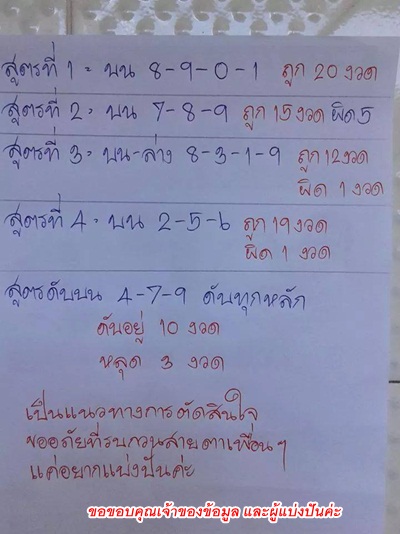 สูตรที่ 1 = บน 8-9-0-1 ถูก 20 งวด
สูตรที่ 2 = บน 7-8-9 ถูก 15 งวด ผิด 5
สูตรที่ 3 = บน-ล่าง 8-3-1-9 ถูก 12 งวด
ผิด 1 งวด
สูตรที่ 4 = บน 2-5-6 ถูก 19 งวด
ผิด 1 งวด
สูตรดับบน 4-7-9 ดับทุกหลัก
ดับอยู่ 10 งวด
หลุด 3 งวด
เป็นแนวทางการตัดสินใจ
ขออภัยที่รบกวนสายตาเพื่อนๆ
แค่อยากแบ่งปันค่ะ
ขอขอบคุณเจ้าของข้อมูล และผู้แบ่งปันค่ะ